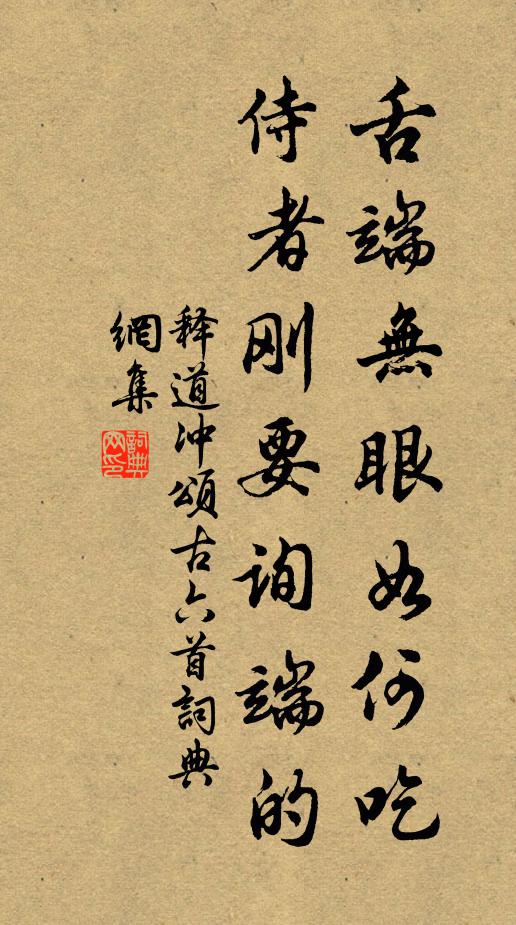 舌端無眼如何吃
侍者刚要询端的
释道冲頌古六首詞典
網集
詞典网印